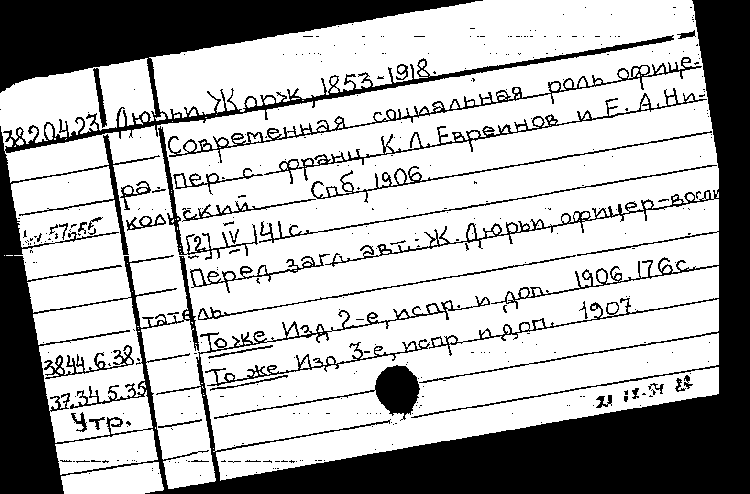 38204.23 Дюрьи, Жорж, 1853-1918.
Современная социальная роль офице-
ра. Пер. с франц. К.Л. Евреинов и Е.А. Ни-
кольский. Спб., 1906.
57655 [2], IV, 141 с.
Перед загл. авт.: Ж. Дюрьи, офицер-воспи
татель.
То же. Изд. 2-е, испр. и доп. 1906. 176 с.
3844.6.38. То же. Изд. 3-е, испр и доп. 1907.
37.34.5.35
Утр.